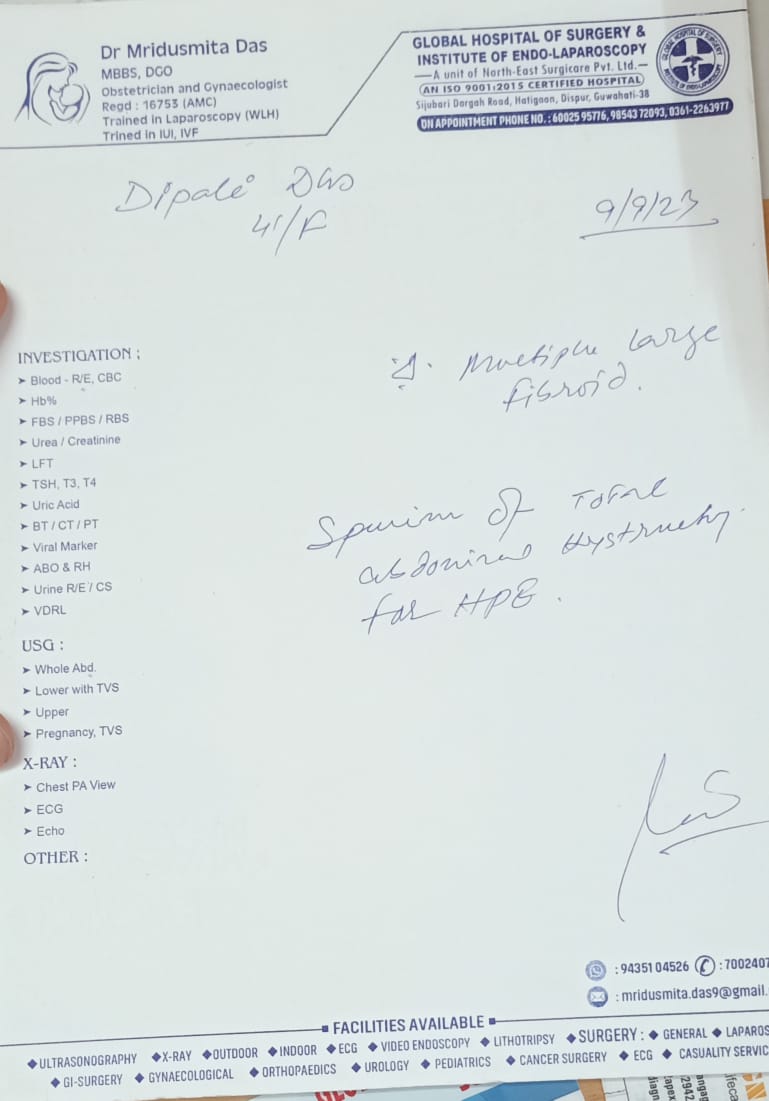 Dr Mridusmita Das
MBBS, DGO
Obstetrician and Gynaecologist
Regd : 16753 (AMC)
Trained in Laparoscopy (WLH)
Trined in IUI, IVF
GLOBAL HOSPITAL OF SURGERY &
INSTITUTE OF ENDO-LAPAROSCOPY
A unit of North-East Surgicare Pvt. Ltd.
(AN ISO 9001:2015 CERTIFIED HOSPITAL)
Sijubari Dargah Road, Hatigaon, Dispur, Guwahati-38
ON APPOINTMENT PHONE NO. : 60025 95776, 98543 72093, 0361-2263977
Dipali Das
9/9/23
INVESTIGATION :
➤ Blood - R/E, CBC
➤ Hb%
➤ FBS / PPBS / RBS
➤ Urea / Creatinine
➤ LFT
➤ TSH, T3, T4
➤ Uric Acid
➤ BT / CT / PT
➤ Viral Marker
➤ ABO & RH
➤ Urine R/E / CS
➤ VDRL
USG :
➤ Whole Abd.
➤ Lower with TVS
➤ Upper
➤ Pregnancy, TVS
X-RAY :
➤ Chest PA View
➤ ECG
➤ Echo
OTHER :
Multiple large
fibroid.
of Total
abdominal
for HPE.
: 94351 04526 : 7002407
: mridusmita.das9@gmail.
FACILITIES AVAILABLE
◆ULTRASONOGRAPHY ◆X-RAY ◆OUTDOOR ◆INDOOR ◆ECG ◆VIDEO ENDOSCOPY ◆LITHOTRIPSY ◆SURGERY : ◆GENERAL ◆LAPAROS
◆GI-SURGERY ◆GYNAECOLOGICAL ◆ORTHOPAEDICS ◆UROLOGY ◆PEDIATRICS ◆CANCER SURGERY ◆ECG ◆CASUALITY SERVIC